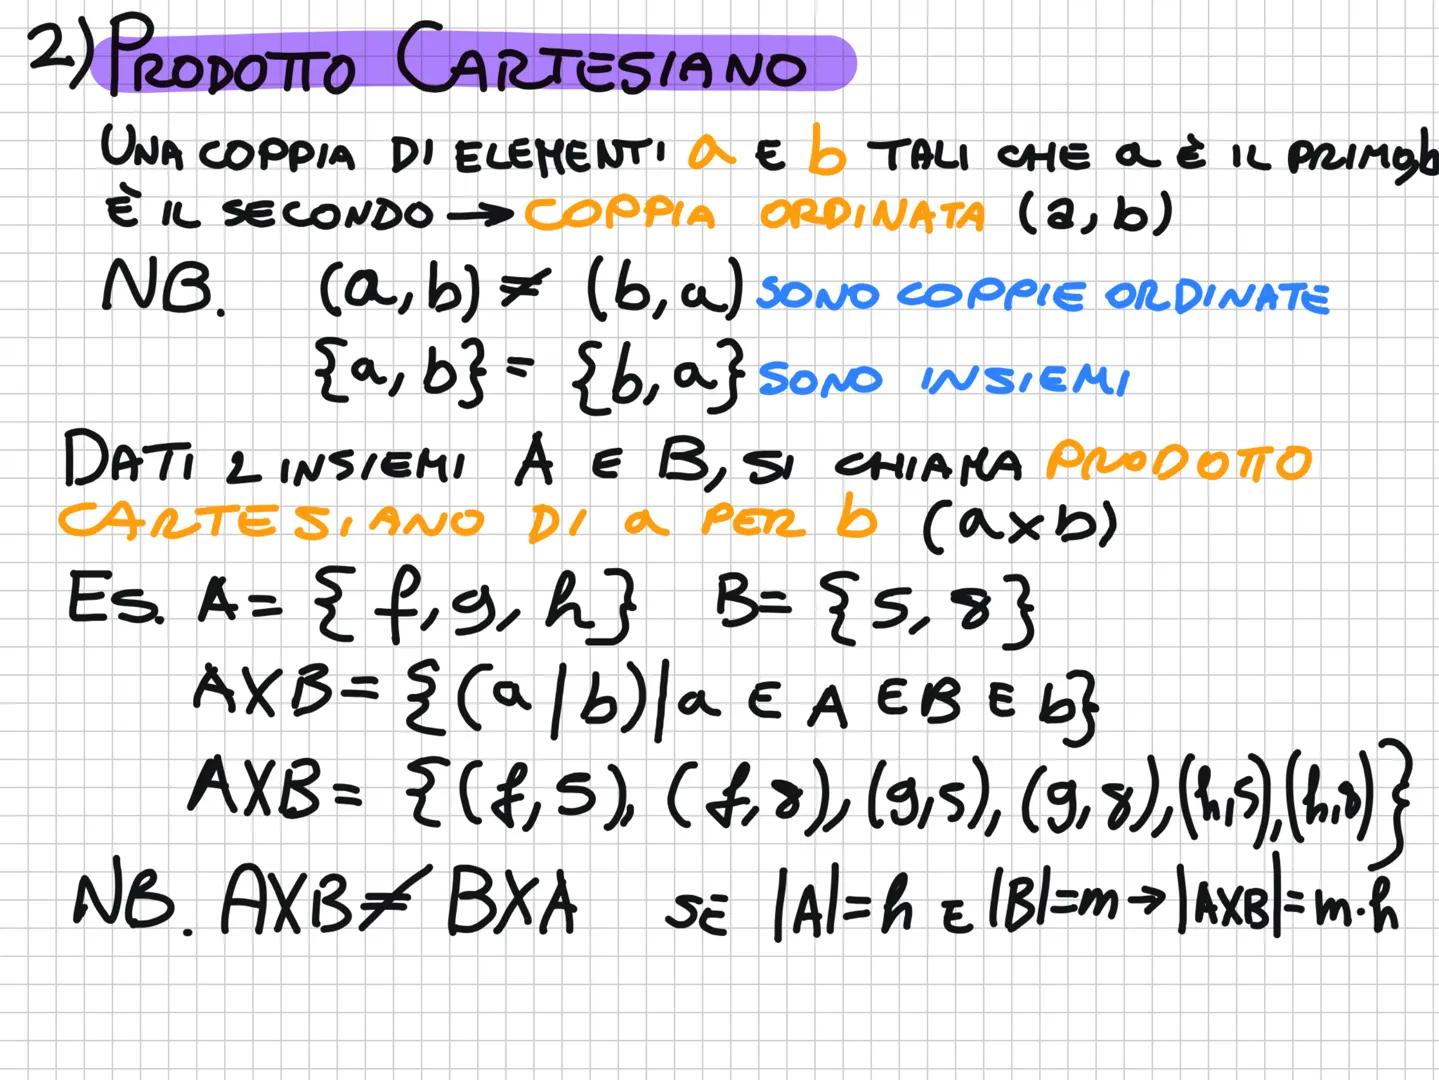 2) PRODOTTO CARTESIANO
UNA COPPIA DI ELEMENTI a E b TALI CHE a È IL PRIMO, b
È IL SECONDO → COPPIA ORDINATA (a, b)
NB. (a, b) ≠ (b, a) SONO COPPIE ORDINATE
{a, b} = {b, a} SONO INSIEMI
DATI 2 INSIEMI A E B, SI CHIAMA PRODOTTO
CARTESIANO DI a PER b (a×b)
ES. A = {f, g, h} B = {5, 8}
AXB = {(a | b) | a ∈ A E B ∈ b}
AXB = {(f, 5), (f, 8), (g, 5), (g, 8), (h, 5), (h, 8)}
NB. AXB ≠ BXA SE |A| = h E |B| = m → |AXB| = m·h